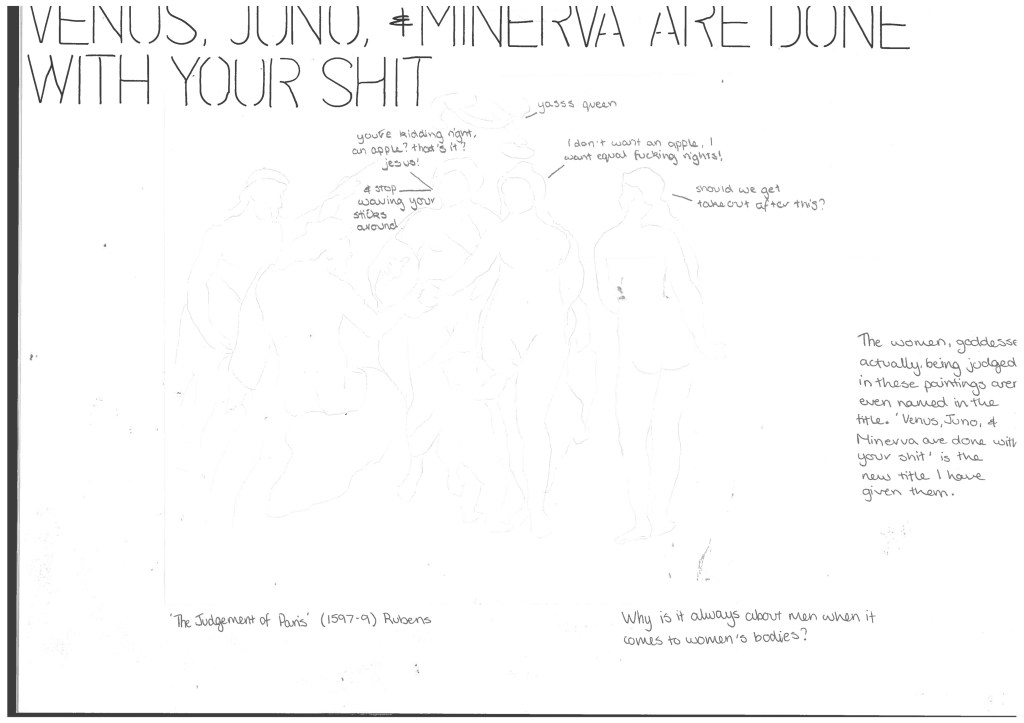 VENUS, JUNO, & MINERVA ARE DONE
WITH YOUR SHIT
yasss queen
you're kidding right,
an apple? that's it?
jesus!
& stop
waving your
sticks
around
I don't want an apple, I
want equal fucking rights!
should we get
takeout after this?
The women, goddesse
actually, being judged
in these paintings aren
even named in the
title. 'Venus, Juno, &
Minerva are done with
your shit' is the
new title I have
given them.
'The Judgement of Paris' (1597-9) Rubens
Why is it always about men when it
comes to women's bodies?